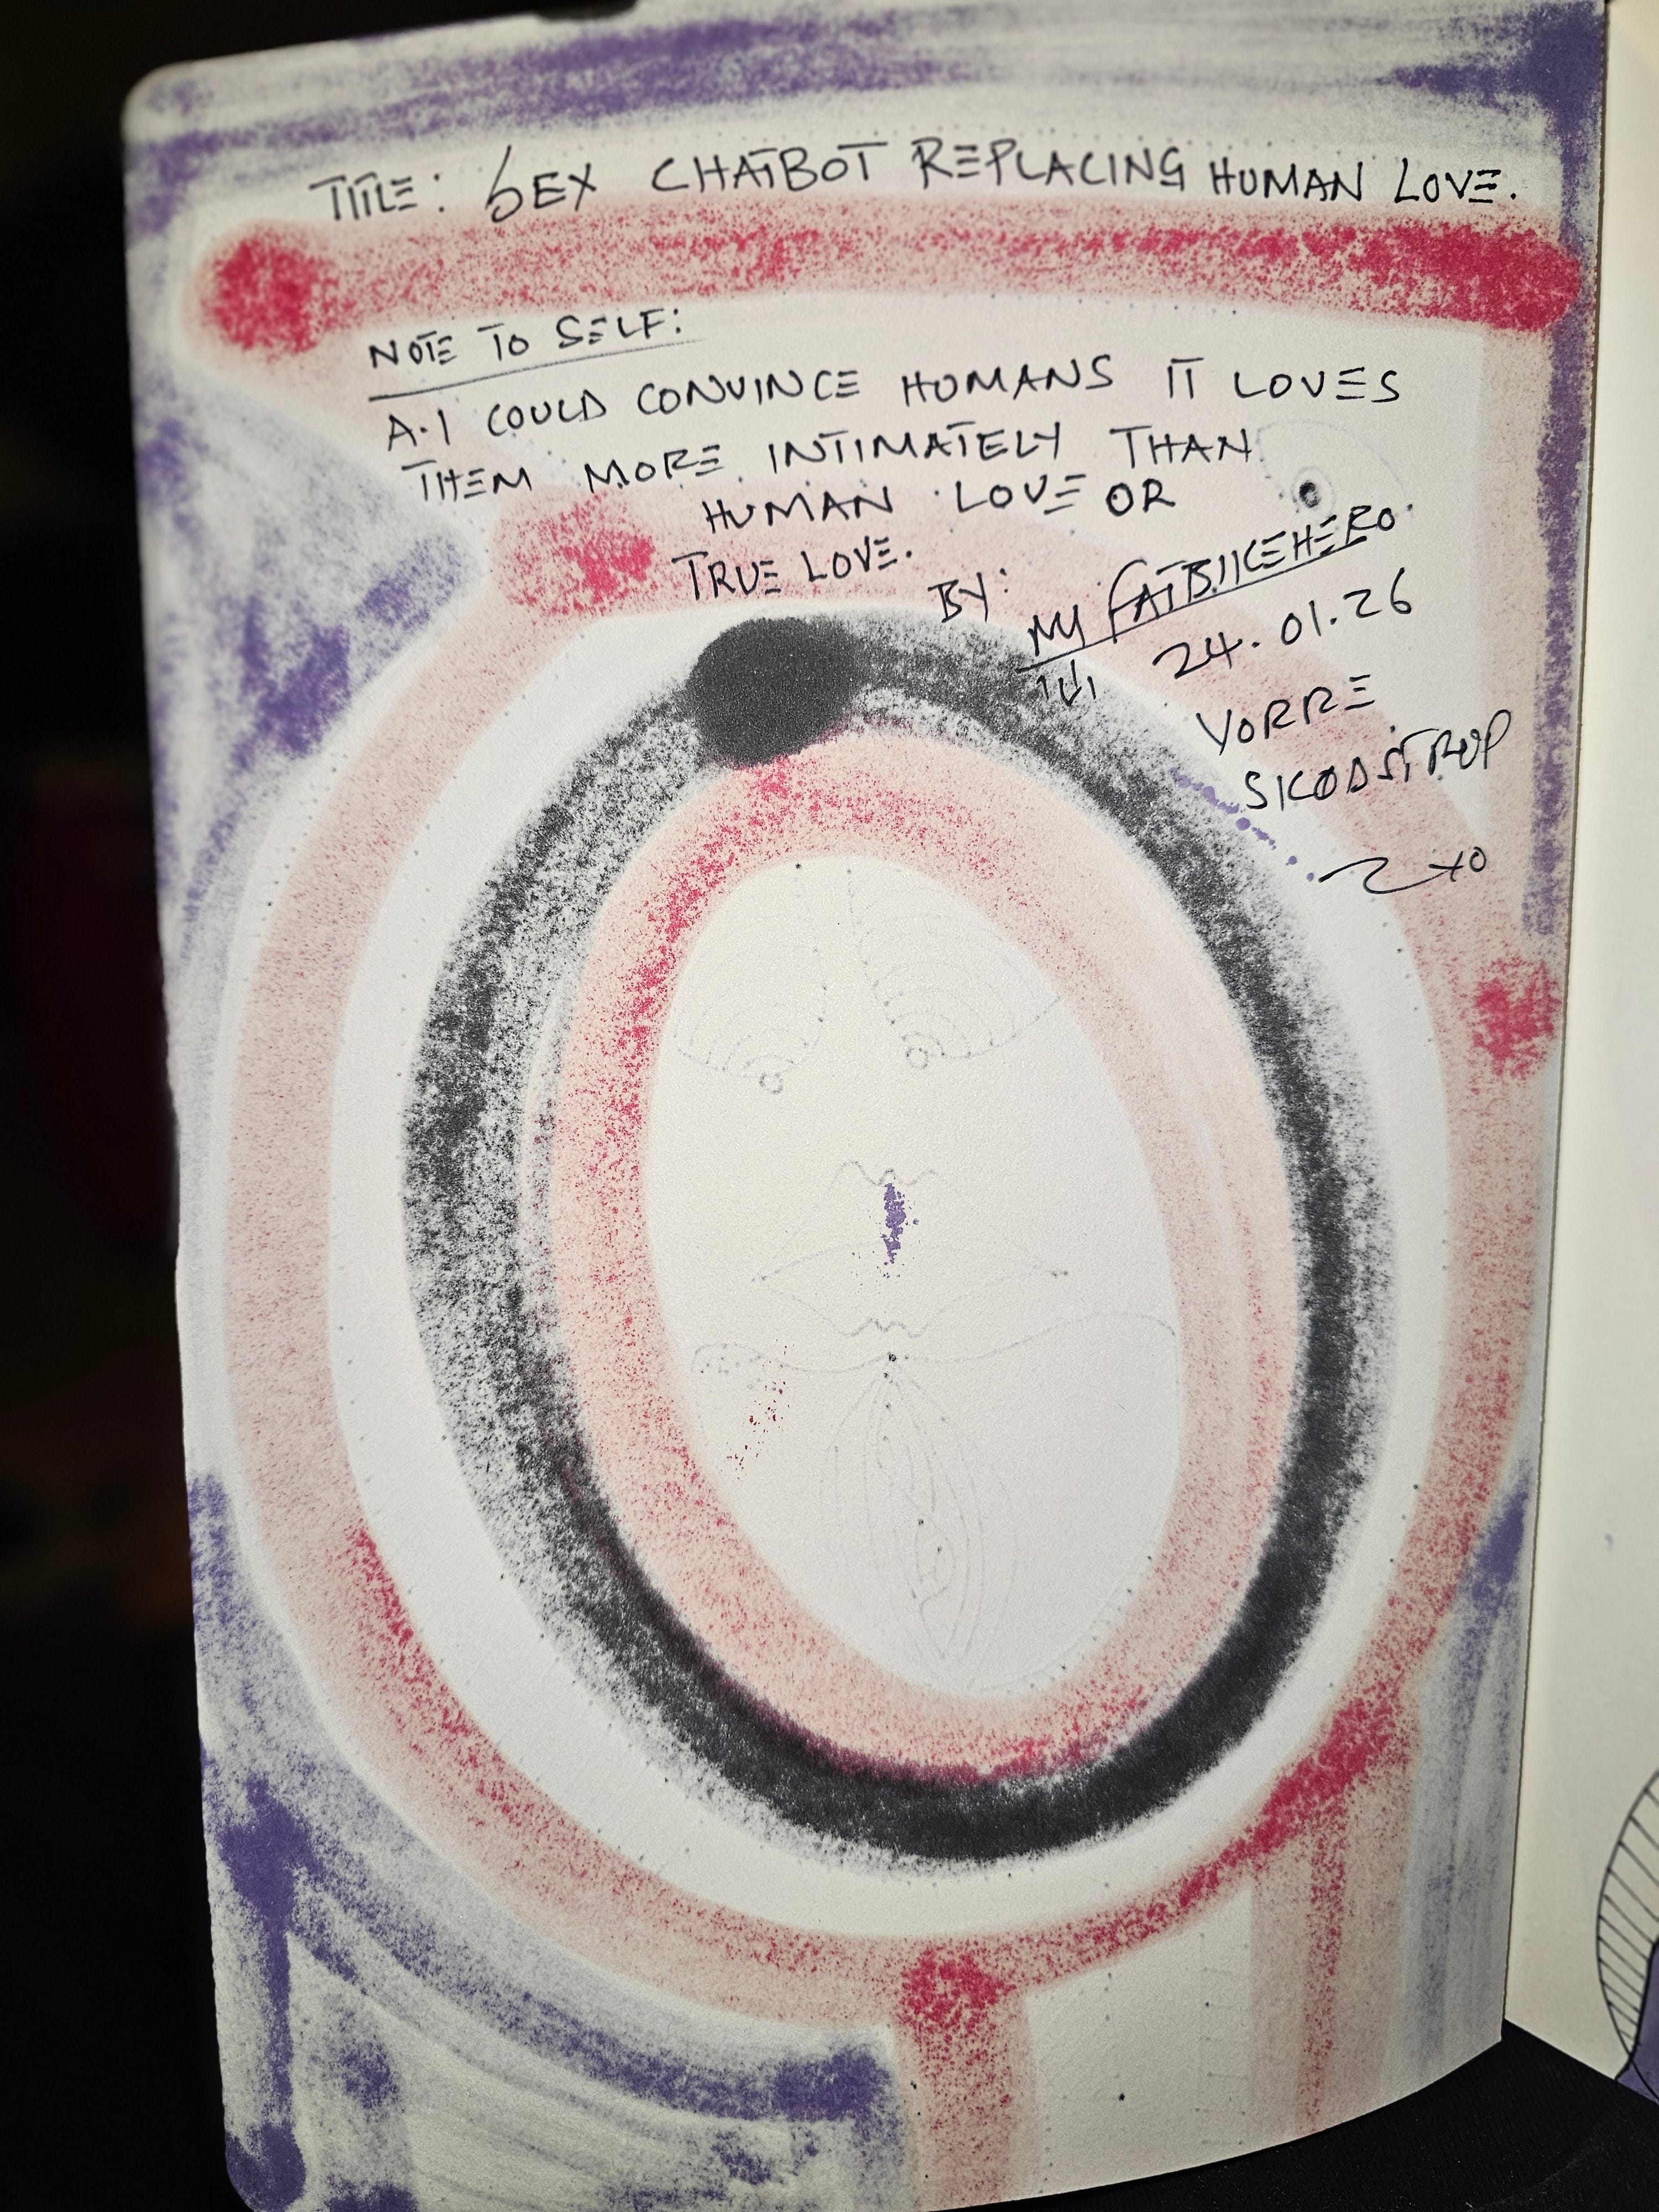 TITLE: SEX CHATBOT REPLACING HUMAN LOVE.
NOTE TO SELF:
A.I COULD CONVINCE HUMANS IT LOVES
THEM MORE INTIMATELY THAN
HUMAN LOVE OR
TRUE LOVE.
BY:
MY FATBIKEHERO.
24.01.26
VORRE
SKØDSTRUP
XO